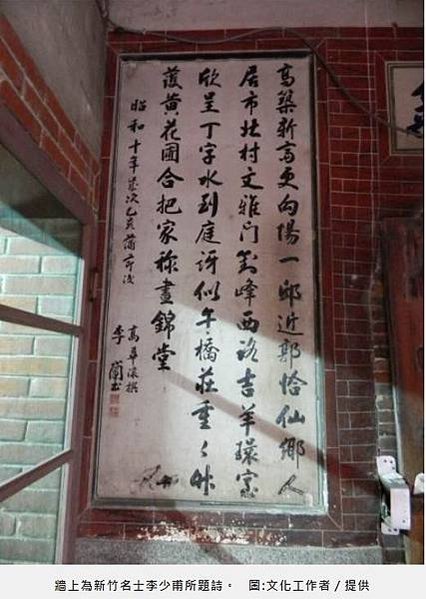 高築新高更向陽一邨近郭恰仙鄉人
居市北村文雅門對峰西路吉羊環宅
欣呈丁字水到庭訝似午橋莊重〻竹
護黃花圃合把家稱晝錦堂
昭和十年歲次乙亥蒲節後
高華袞撰
李 書
牆上為新竹名士李少甫所題詩。 圖:文化工作者 / 提供